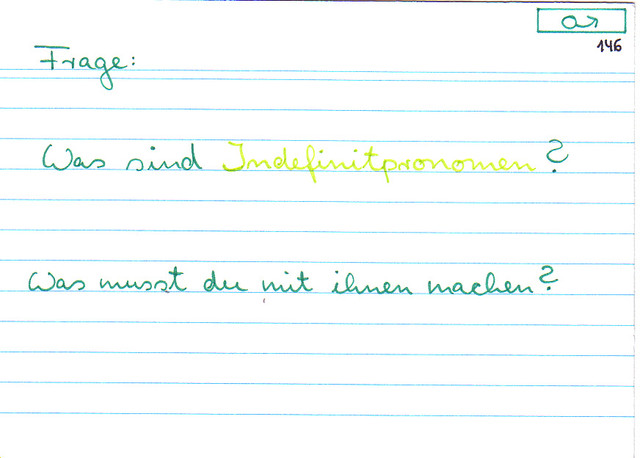 a↗
146
Frage:
Was sind Indefinitpronomen?
Was musst du mit ihnen machen?